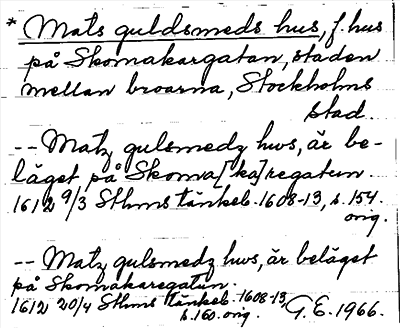 * Mats guldsmeds hus, f. hus
på Skomakargatan, staden
mellan broarna, Stockholms
stad.
-- Matz gulsmedz hws, är be-
läget på Skoma[ka]regatun.
1612 9/3 Sthms tänkeb. 1608-13, s. 154.
orig.
-- Matz gulsmedz hws, är beläget
på Skomakaregatun.
1612 20/4 Sthms tänkeb. 1608-13,
s. 160. orig. G.E. 1966.